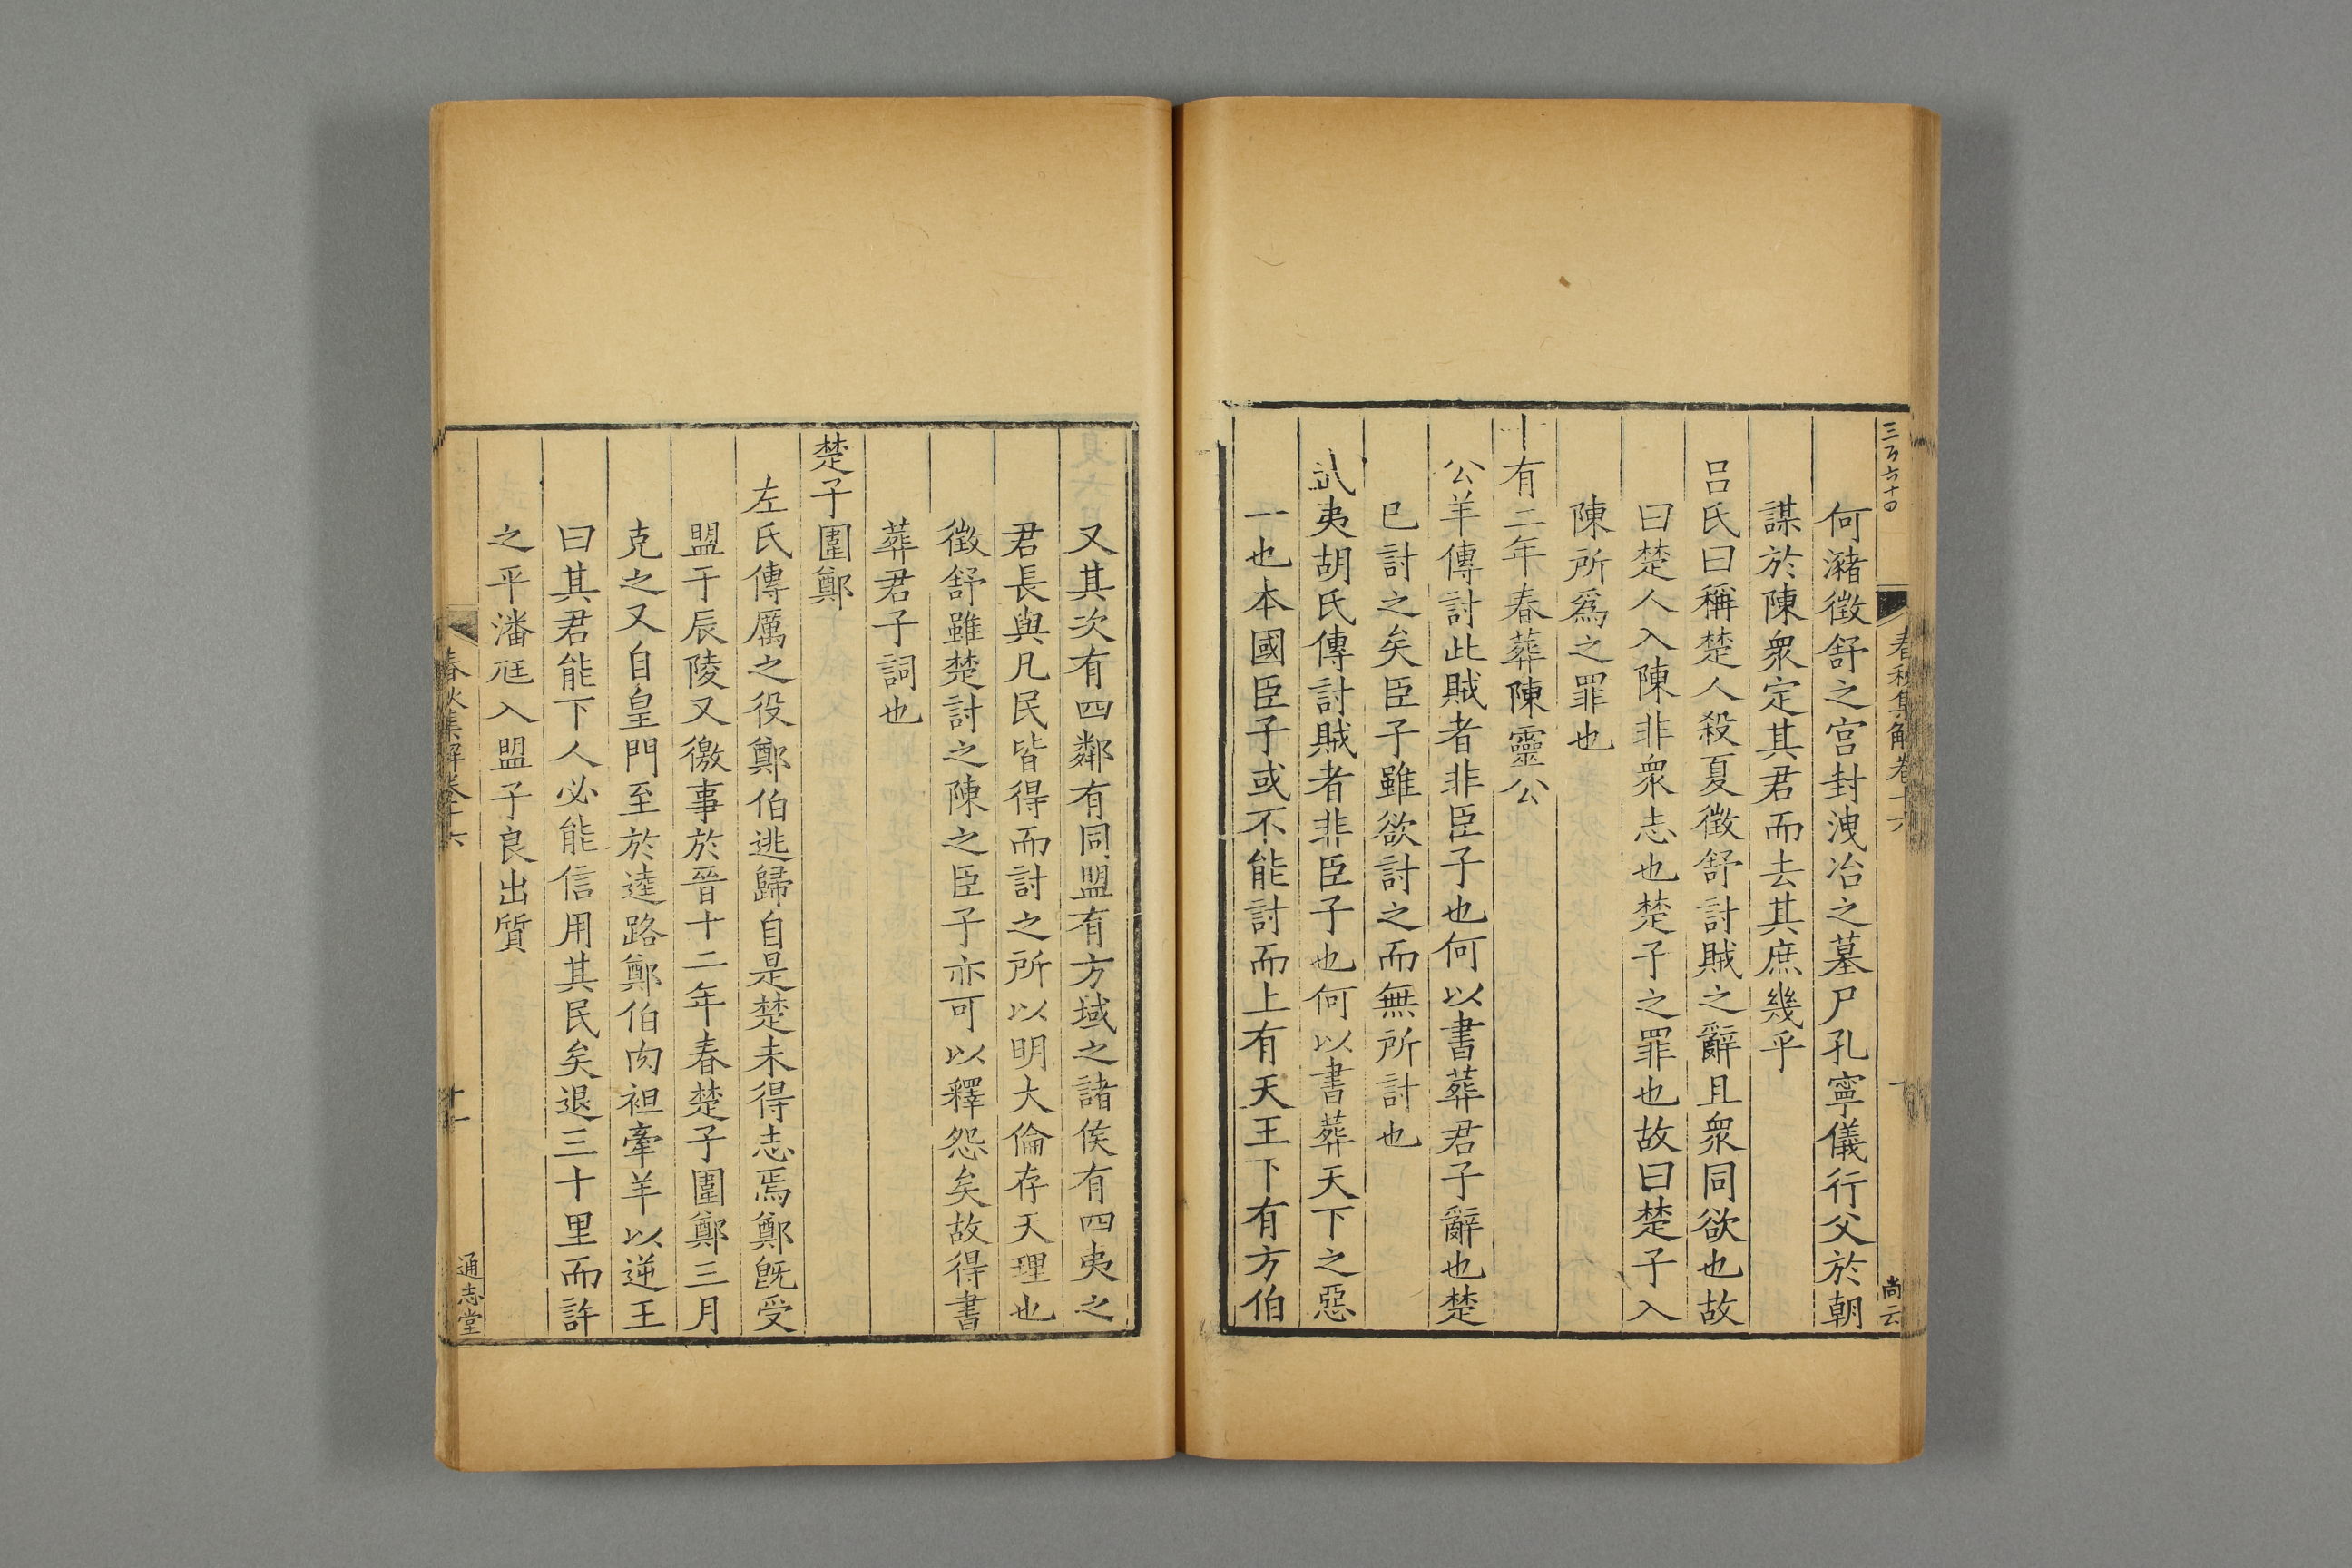 三百六十四
春秋集解卷十六
十
尚云
何瀦徵舒之宫封洩冶之墓尸孔寧儀行父於朝
謀於陳衆定其君而去其庶幾乎
吕氏曰稱楚人殺夏徵舒討賊之辭且衆同欲也故
曰楚人入陳非衆志也楚子之罪也故曰楚子入
陳所爲之罪也
十有二年春葬陳靈公
公羊傳討此賊者非臣子也何以書葬君子辭也楚
已討之矣臣子雖欲討之而無所討也
武夷胡氏傳討賊者非臣子也何以書葬天下之惡
一也本國臣子或不能討而上有天王下有方伯
又其次有四鄰有同盟有方域之諸侯有四夷之
君長與凡民皆得而討之所以明大倫存天理也
徵舒雖楚討之陳之臣子亦可以釋怨矣故得書
葬君子詞也
楚子圍鄭
左氏傳厲之役鄭伯逃歸自是楚未得志焉鄭旣受
盟于辰陵又徼事於晉十二年春楚子圍鄭三月
克之又自皇門至於逵路鄭伯肉袒牽羊以逆王
曰其君能下人必能信用其民矣退三十里而許
之平潘尫入盟子良出質
春秋集解卷十六
十一
通志堂